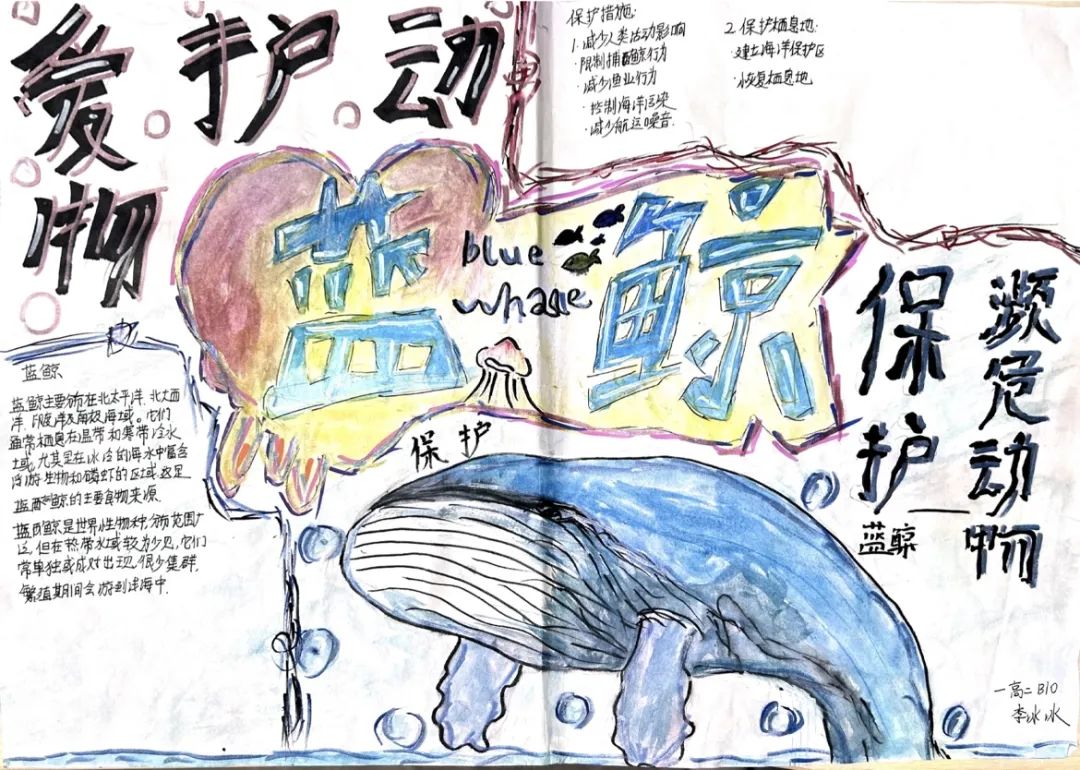 爱护动
物
保护措施:
1. 减少人类活动影响
·限制捕鲸行为
·减少渔业行为
·控制海洋污染
·减少航运噪音.
2. 保护栖息地:
·建立海洋保护区
·恢复栖息地
蓝鲸
blue
whasle
保护
濒危动物
保护
蓝鲸
蓝鲸
蓝鲸主要分布在北太平洋、北大西
洋、印度洋及南极海域。它们
通常栖息在温带和寒带冷水
域,尤其是在冰冷的海水中富含
浮游生物和磷虾的区域,这是
蓝鲸的主要食物来源.
蓝鲸是世界性物种,分布范围广
泛,但在热带水域较为少见,它们
常单独或成对出现,很少集群.
繁殖期间会游到浅海中.
一高二 B10
李冰冰